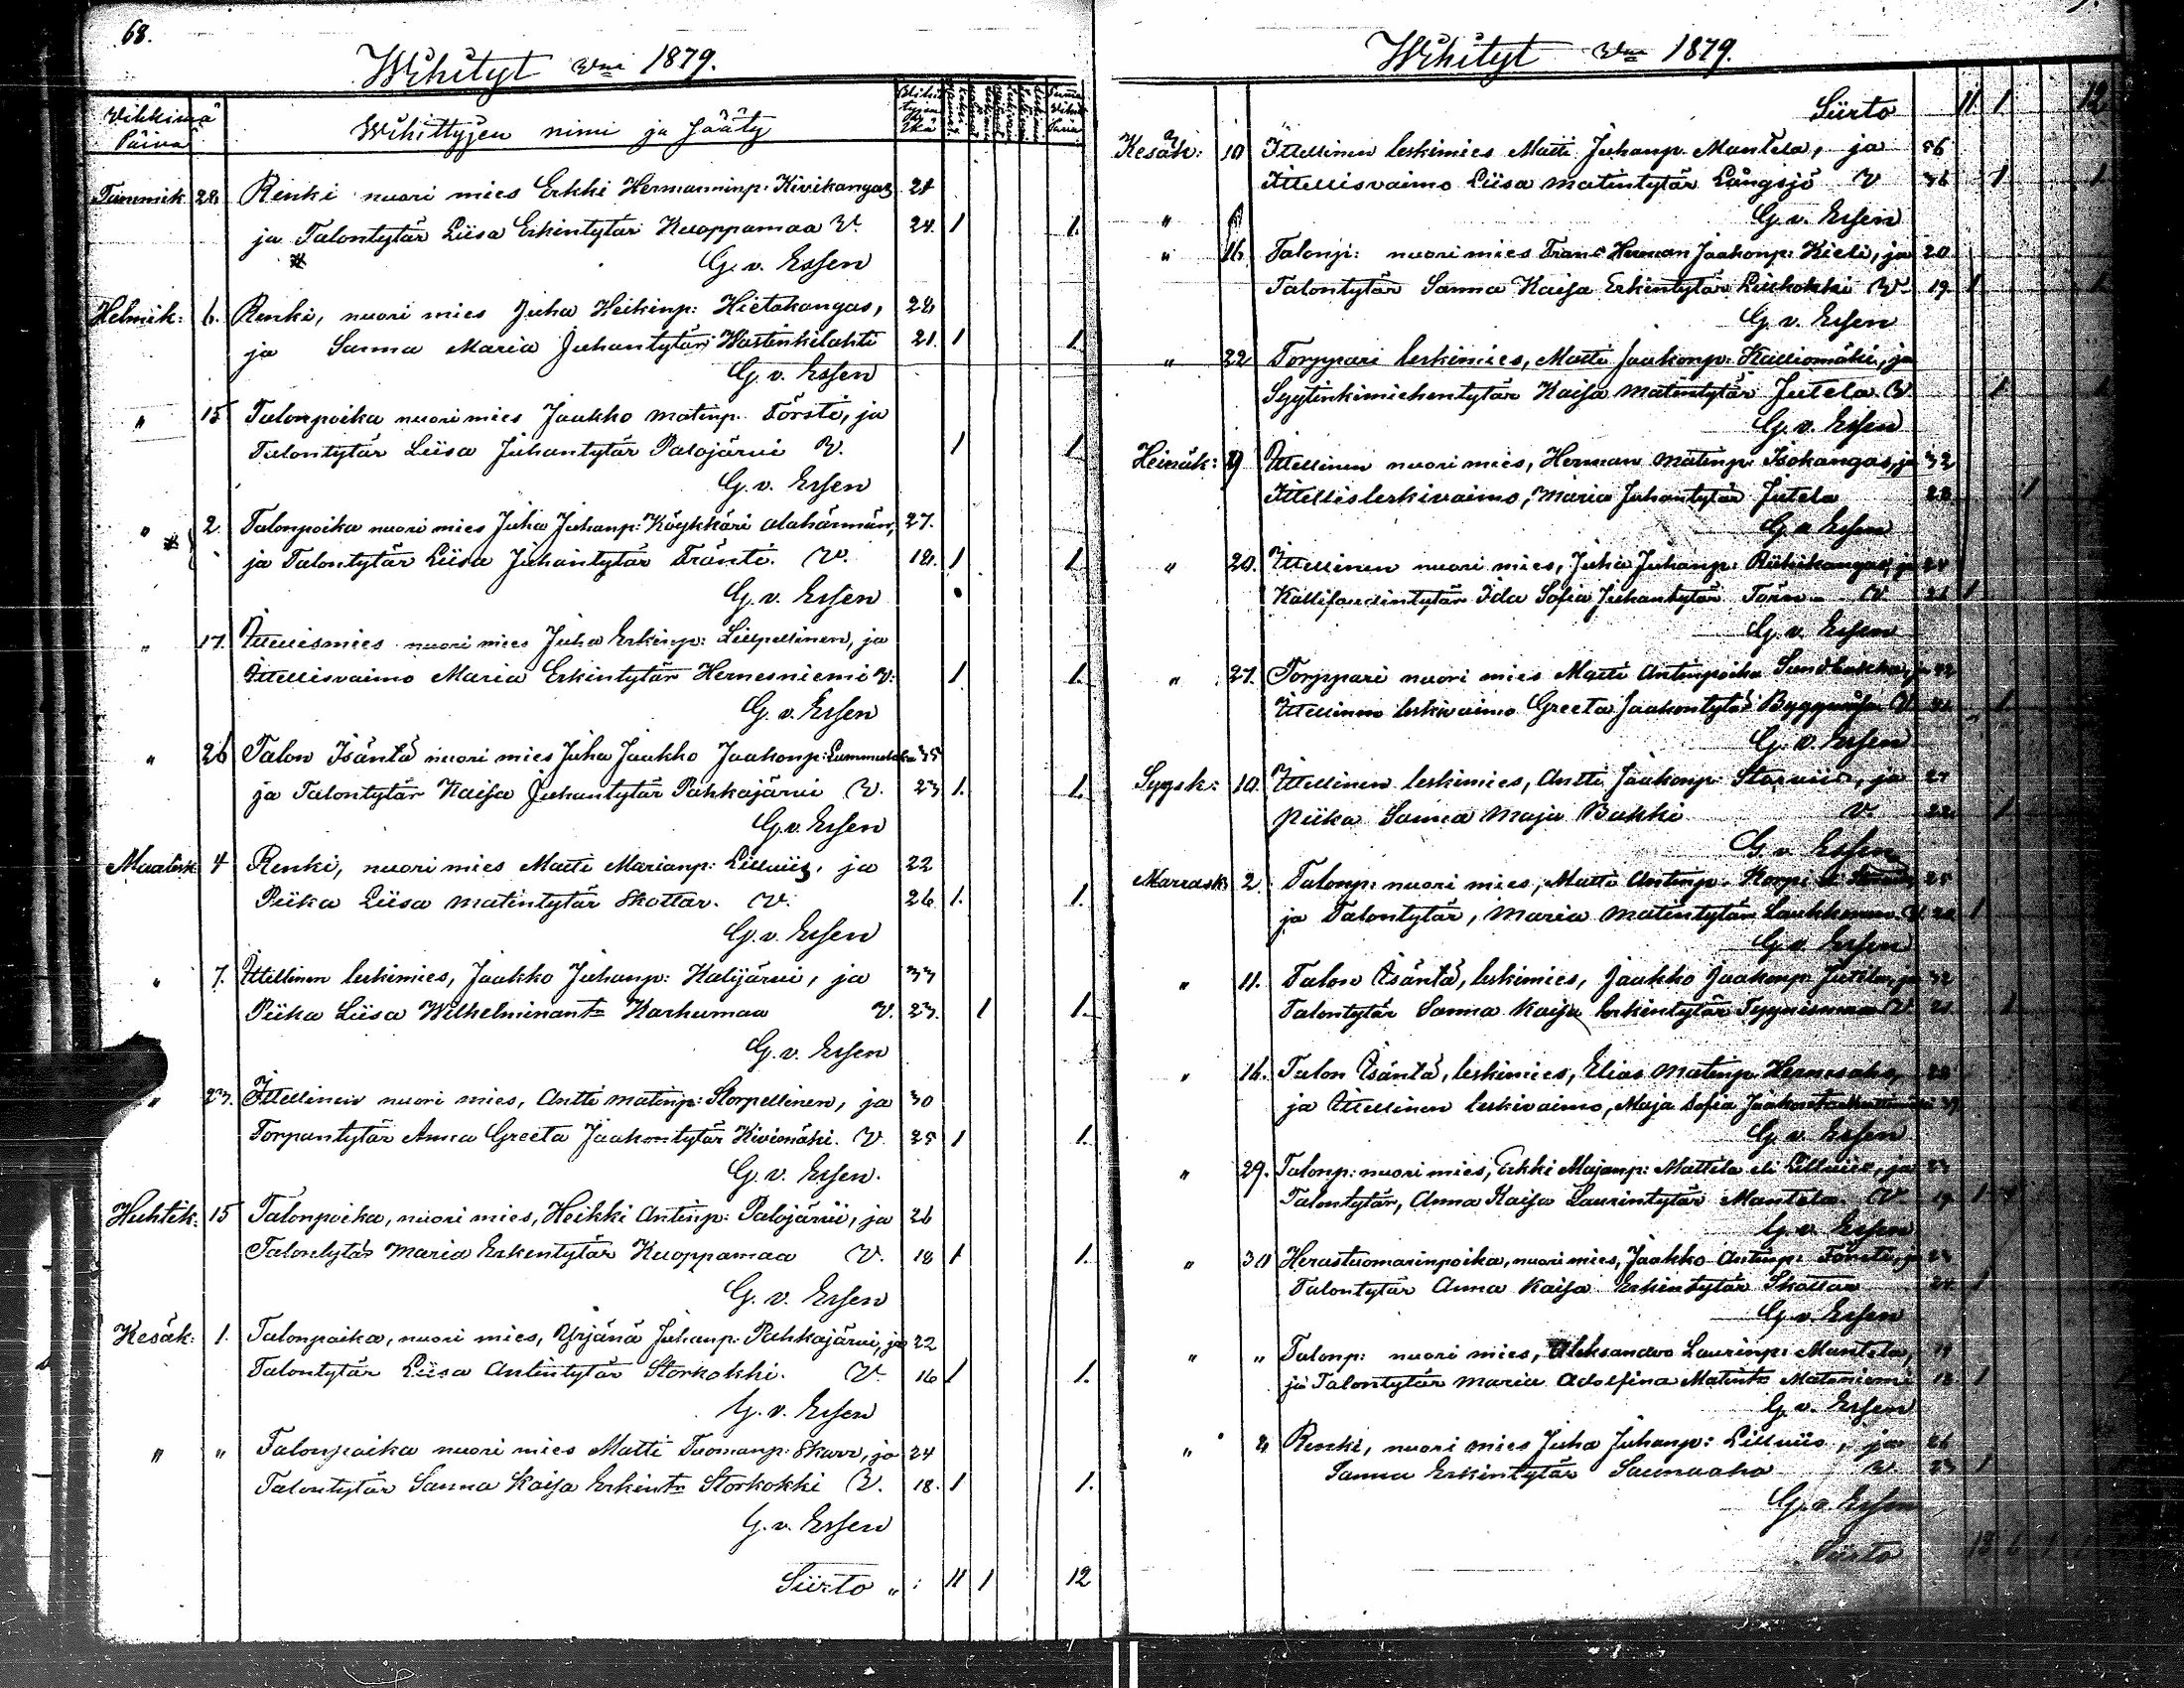 68.
Wihityt wna 1879.
Wihkimä Päivä
Wihittyjen nimi ja sääty
Tammik. 28. Renki nuori mies Erkki Hermanninp: Kivikangas 21
ja Talontytär Liisa Erkintytär Kuoppamaa V. 24. 1 1.
G. v. Essen
Helmik: 6. Renki, nuori mies Juha Heikinp: Hietakangas, 28
ja Sanna Maria Juhantytär Wastinkilahti 21. 1 1.
G. v. Essen
" 15 Talonpoika nuori mies Jaakko Matinp. Försti, ja
Talontytär Liisa Juhantytär Palojärvi V. 1 1
G. v. Essen
" 2. Talonpoika nuori mies Juha Juhanp: Köykkäri Alahärmän, 27.
ja Talontytär Liisa Juhantytär Tränti. V. 18. 1 1
G. v. Essen
" 17. Ittellismies nuori mies Juha Erkinp: Lillpellinen, ja
Ittellisvaimo Maria Erkintytär Hernesniemi V. 1. 1.
G. v. Essen
" 26 Talon Isäntä nuori mies Juha Jaakko Jaakonp: 35
ja Talontytär Kaisa Juhantytär Pahkajärvi V. 23 1. 1.
G. v. Essen
Maalisk. 4 Renki, nuori mies Matti Marianp: Lillviis, ja 22
Piika Liisa Matintytär Skattar. V. 26 1. 1.
G. v. Essen
" 7. Ittellinen leskimies, Jaakko Juhanp: Kalijärvi, ja 33
Piika Liisa Wilhelminant: Karhumaa V. 23. 1 1.
G. v. Essen
" 23. Ittellinen nuori mies, Antti Matinp: Storpellinen, ja 30
Torpantytär Anna Greeta Jaakontytär Kivimäki. V. 25 1 1.
G. v. Essen.
Huhtik. 15 Talonpoika, nuori mies, Heikki Antinp: Palojärvi, ja 26
Talontytär Maria Erkentytär Kuoppamaa V. 18 1 1.
G. v. Essen
Kesäk: 1. Talonpoika, nuori mies, Yrjänä Juhanp: Pahkajärvi, ja 22
Talontytär Liisa Antintytär Storkokki. V. 16 1 1.
G. v. Essen
" " Talonpoika nuori mies Matti Tuomanp: Skarr, ja 24
Talontytär Sanna Kaisa Erkint: Storkokki V. 18. 1 1.
G. v. Essen
Siirto " : 11 1 12
Wihityt wna 1879.
Siirto 11 1 12
Kesäk: 10 Ittellinen leskimies Matti Juhanp. Mantela, ja 56
Ittellisvaimo Liisa Matintytär Långsjö V 36 1 1
" G. v. Essen
" 16 Talonp: nuori mies Frans Herman Jaakonp: Kieli, ja 20
Talontytär Sanna Kaisa Erkintytär V 19. 1 1
G. v. Essen
" 22 Torppari leskimies, Matti Jaakonp: Kalliomäki, ja
Syytinkimiehentytär Kaisa Matintytär Jutela. V. 1 1
G. v. Essen
Heinäk: 9 Ittellinen nuori mies, Herman Matinp: Isokangas, ja 32
Ittellisleskivaimo, Maria Juhantytär Jutela 28 1
G. v. Essen
" 20. Ittellinen nuori mies, Juha Juhanp: ja 24
Ida Sofia Juhantytär Törn V 1
G. v. Essen
" 27. Torppari nuori mies Matti Antinpoika ja
Ittellinen leskivaimo Greeta Jaakontytär V 1
G. v. Essen
Syysk: 10. Ittellinen leskimies, Antti Jaakonp: Storviis, ja 27
Piika Sanna Maja Bakki V. 22. 1
G. v. Essen
Marrask: 2. Talonp: nuori mies, Matti Antinp. Korpi 25
ja Talontytär, Maria Matintytär Laukkonen V. 1
G. v. Essen
" 11. Talon Isäntä, leskimies, Jaakko Jaakonp: Jutela, ja 32
Talontytär Sanna Kaisa Erkintytär V. 21. 1
" 16. Talon Isäntä, leskimies, Elias Matinp. Hernesaho,
ja Ittellinen leskivaimo, Maja Sofia
G. v. Essen
" 29. Talonp: nuori mies, Erkki Majanp: Mattila eli Lillviis, ja 23
Talontytär, Anna Kaisa Laurintytär Mantela. V 19 1
G. v. Essen
" 30 Herastuomarinpoika, nuori mies, Jaakko Antinp: 23
Talontytär Anna Kaisa Erkintytär Skattar 24 1
G. v. Essen
" " Talonp: nuori mies, Aleksandro Laurinp: Mantela, 19
ja Talontytär Maria Adolfina Matint: Mataniemi 18 1
G. v. Essen
" " Renki, nuori mies Juha Juhanp: Lillviis, ja 26
Sanna Erkintytär Saunaaho V. 23 1
G. v. Essen
Siirto 18 6 1